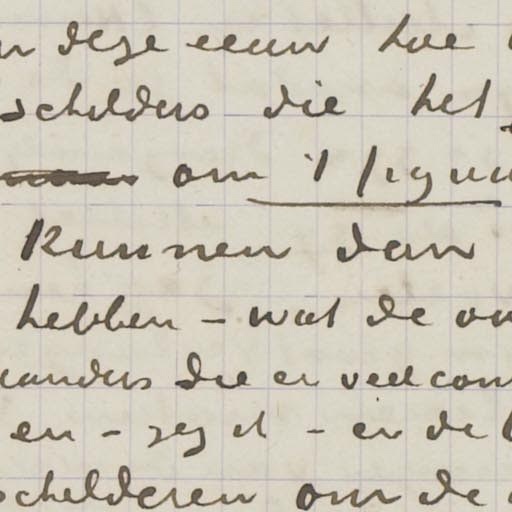 deze eeuw hoe
schilders die het
om 't figuu
kunnen dan
hebben – wat de
die er veel con
en – zeg ik – in de
schilderen om de